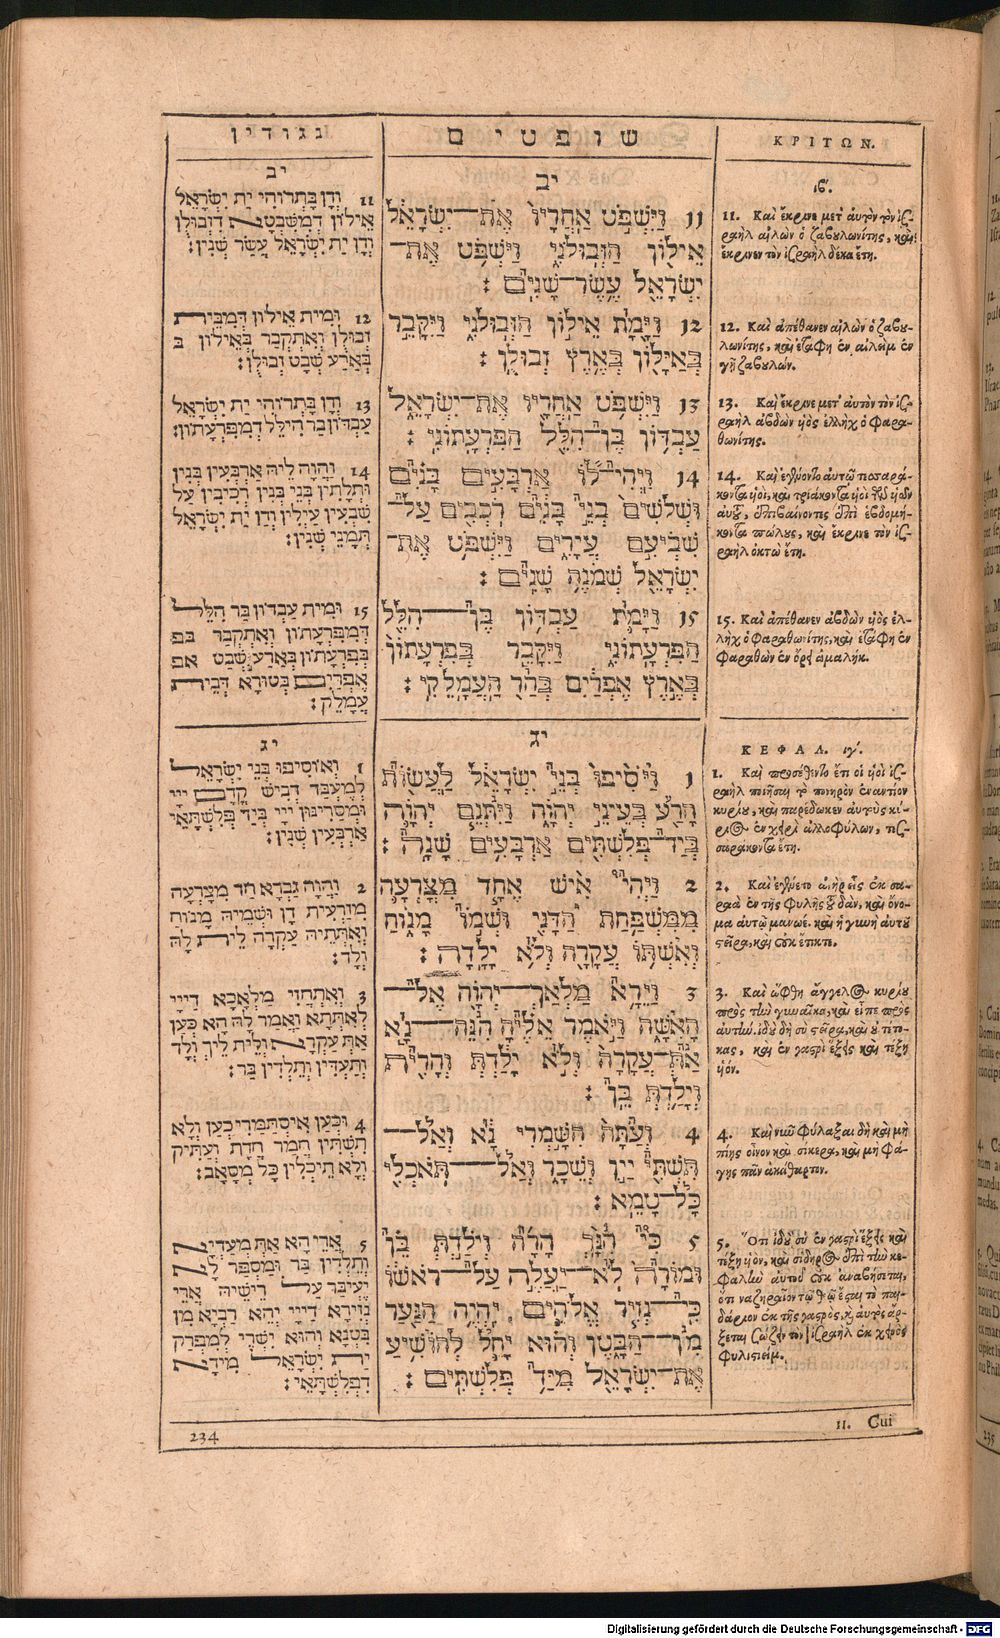 נגודין
יב
11 וְדָן בָּתְרוֹהִי יַת יִשְׂרָאֵל
אֵילוֹן דְמִשִׁבְטָא דִזְבוּלֻן
וְדָן יַת יִשְׂרָאֵל עֲשַׂר שְׁנִין׃
12 וּמִית אֵילוֹן דְמִבֵּית
זְבוּלֻן וְאִתְקְבַר בְּאֵילוֹן ב
בְּאַרְעַ שְׁבַט זְבוּלֻן׃
13 וְדָן בָּתְרוֹהִי יַת יִשְׂרָאֵל
עַבְדוֹן בַּר הִילֵל דְמִפִּרְעָתוֹן׃
14 וַהֲווֹ לֵיהּ אַרְבְּעִין בְּנִין
וּתְלָתִין בְּנֵי בְנִין רְכִיבִין עַל
שִׁבְעִין עֵילִין וְדָן יַת יִשְׂרָאֵל
תְּמָנֵי שְׁנִין׃
15 וּמִית עַבְדוֹן בַּר הִלֵּל
דְמִפִּרְעָתוֹן וְאִתְקְבַר בפ
בְּפִרְעָתוֹן בְּאַרְעַ שְׁבַט אפ
אֶפְרַיִם בְּטוּרָא דְבֵית
עֲמָלֵק׃
יג
1 וְאוֹסִיפוּ בְּנֵי יִשְׂרָאֵל
לְמֶעְבַּד דְבִישׁ קֳדָם יְיָי
וּמְסָרִינוּן יְיָי בְּיַד פְּלִשְׁתָּאֵי
אַרְבְּעִין שְׁנִין׃
2 וַהֲוָה גַבְרָא חַד מִצָּרְעָה
מִזַרְעִית דָן וּשְׁמֵיהּ מָנוֹחַ
וְאִתְּתֵיהּ עַקְרָה לֵית לָהּ
וְלָד׃
3 וְאִתְחֲזִי מַלְאָכָא דַייָי
לְאִתְּתָא וַאֲמַר לָהּ הָא כְעַן
אַתְּ עַקְרָא וְלֵית לִיךְ וְלָד
וּתְעַדִּין וּתְלִדִין בַּר׃
4 וּכְעַן אִיסְתַּמְרִי כְעַן וְלָא
תִשְׁתִּין חֲמַר חֲדַת וְעַתִּיק
וְלָא תֵיכְלִין כָּל מְסָאָב׃
5 אֲרֵי הָא אַתְּ מְעַדְיָא
וּתְלִדִין בַּר וּמַסְפַּר לָא
יֶעִיבַר עַל רֵישֵׁיהּ אֲרֵי
נְזִירָא דַייָי יְהֵא רַבְיָא מִן
בִּטְנָא וְהוּא יְשָׁרֵי לְמִפְרַק
יַת יִשְׂרָאֵל מִידָא
דִפְלִשְׁתָּאֵי׃
שופטים
יב
11 וַיִּשְׁפֹּט אַחֲרָיו אֶת־יִשְׂרָאֵל
אֵילוֹן הַזְּבוּלֹנִי וַיִּשְׁפֹּט אֶת־
יִשְׂרָאֵל עֶשֶׂר־שָׁנִים׃
12 וַיָּמָת אֵילוֹן הַזְּבוּלֹנִי וַיִּקָּבֵר
בְּאַיָּלוֹן בְּאֶרֶץ זְבוּלֻן׃
13 וַיִּשְׁפֹּט אַחֲרָיו אֶת־יִשְׂרָאֵל
עַבְדּוֹן בֶּן־הִלֵּל הַפִּרְעָתוֹנִי׃
14 וַיְהִי־לוֹ אַרְבָּעִים בָּנִים
וּשְׁלֹשִׁים בְּנֵי בָנִים רֹכְבִים עַל־
שִׁבְעִים עֲיָרִים וַיִּשְׁפֹּט אֶת־
יִשְׂרָאֵל שְׁמֹנֶה שָׁנִים׃
15 וַיָּמָת עַבְדּוֹן בֶּן־הִלֵּל
הַפִּרְעָתוֹנִי וַיִּקָּבֵר בְּפִרְעָתוֹן
בְּאֶרֶץ אֶפְרַיִם בְּהַר הָעֲמָלֵקִי׃
יג
1 וַיֹּסִיפוּ בְּנֵי יִשְׂרָאֵל לַעֲשׂוֹת
הָרַע בְּעֵינֵי יְהוָה וַיִּתְּנֵם יְהוָה
בְּיַד־פְּלִשְׁתִּים אַרְבָּעִים שָׁנָה׃
2 וַיְהִי אִישׁ אֶחָד מִצָּרְעָה
מִמִּשְׁפַּחַת הַדָּנִי וּשְׁמוֹ מָנוֹחַ
וְאִשְׁתּוֹ עֲקָרָה וְלֹא יָלָדָה׃
3 וַיֵּרָא מַלְאַךְ־יְהוָה אֶל־
הָאִשָּׁה וַיֹּאמֶר אֵלֶיהָ הִנֵּה־נָא
אַתְּ־עֲקָרָה וְלֹא יָלַדְתְּ וְהָרִית
וְיָלַדְתְּ בֵּן׃
4 וְעַתָּה הִשָּׁמְרִי נָא וְאַל־
תִּשְׁתִּי יַיִן וְשֵׁכָר וְאַל־תֹּאכְלִי
כָּל־טָמֵא׃
5 כִּי הִנָּךְ הָרָה וְיֹלַדְתְּ בֵּן
וּמוֹרָה לֹא־יַעֲלֶה עַל־רֹאשׁוֹ
כִּי־נְזִיר אֱלֹהִים יִהְיֶה הַנַּעַר
מִן־הַבָּטֶן וְהוּא יָחֵל לְהוֹשִׁיעַ
אֶת־יִשְׂרָאֵל מִיַּד פְּלִשְׁתִּים׃
ΚΡΙΤΩΝ.
ιβ'.
11. Καὶ ἔκρινε μετ' αὐτὸν τὸν ἰσ-
ραὴλ αἰλὼν ὁ ζαβουλωνίτης, καὶ
ἔκρινεν τὸν ἰσραὴλ δέκα ἔτη.
12. Καὶ ἀπέθανεν αἰλὼν ὁ ζαβου-
λωνίτης, καὶ ἐτάφη ἐν αἰλεὶμ ἐν
γῇ ζαβουλών.
13. Καὶ ἔκρινε μετ' αὐτὸν τὸν ἰσ-
ραὴλ ἀβδὼν υἱὸς ἐλλὴχ ὁ φαρα-
θωνίτης.
14. Καὶ ἐγένοντο αὐτῷ τεσσαρά-
κοντα υἱοὶ, καὶ τριάκοντα υἱοὶ τῶν υἱῶν
αὐτοῦ, ἐπιβαίνοντες ἐπὶ ἑβδομή-
κοντα πώλους, καὶ ἔκρινε τὸν ἰσ-
ραὴλ ὀκτὼ ἔτη.
15. Καὶ ἀπέθανεν ἀβδὼν υἱὸς ἐλ-
λὴχ ὁ φαραθωνίτης, καὶ ἐτάφη ἐν
φαραθὼν ἐν ὄρει ἀμαλήκ.
ΚΕΦΑΛ. ιγ'.
1. Καὶ προσέθεντο ἔτι οἱ υἱοὶ ἰσ-
ραὴλ ποιῆσαι τὸ πονηρὸν ἐναντίον
κυρίου, καὶ παρέδωκεν αὐτοὺς κύ-
ριος ἐν χειρὶ ἀλλοφύλων, τεσ-
σαράκοντα ἔτη.
2. Καὶ ἐγένετο ἀνὴρ εἷς ἐκ σα-
ραὰ ἐκ τῆς φυλῆς τοῦ δὰν, καὶ ὄνο-
μα αὐτῷ μανωέ. καὶ ἡ γυνὴ αὐτοῦ
στεῖρα, καὶ οὐκ ἔτικτε.
3. Καὶ ὤφθη ἄγγελος κυρίου
πρὸς τὴν γυναῖκα, καὶ εἶπε πρὸς
αὐτὴν. ἰδοὺ δὴ σὺ στεῖρα, καὶ οὐ τέτο-
κας, καὶ ἐν γαστρὶ ἕξεις καὶ τέξῃ
υἱόν.
4. Καὶ νῦν φύλαξαι δὴ καὶ μὴ
πίῃς οἶνον καὶ σίκερα, καὶ μὴ φά-
γῃς πᾶν ἀκάθαρτον.
5. Ὅτι ἰδοὺ σὺ ἐν γαστρὶ ἕξεις καὶ
τέξῃ υἱὸν, καὶ σίδηρος ἐπὶ τὴν κε-
φαλὴν αὐτοῦ οὐκ ἀναβήσεται,
ὅτι ναζηραῖον τῷ θεῷ ἔσται τὸ παι-
δάριον ἐκ τῆς γαστρὸς, καὶ αὐτὸς ἄρ-
ξεται σώζειν τὸν ἰσραὴλ ἐκ χειρὸς
φυλιστιείμ.
234
11. Cui
Digitalisierung gefördert durch die Deutsche Forschungsgemeinschaft - DFG